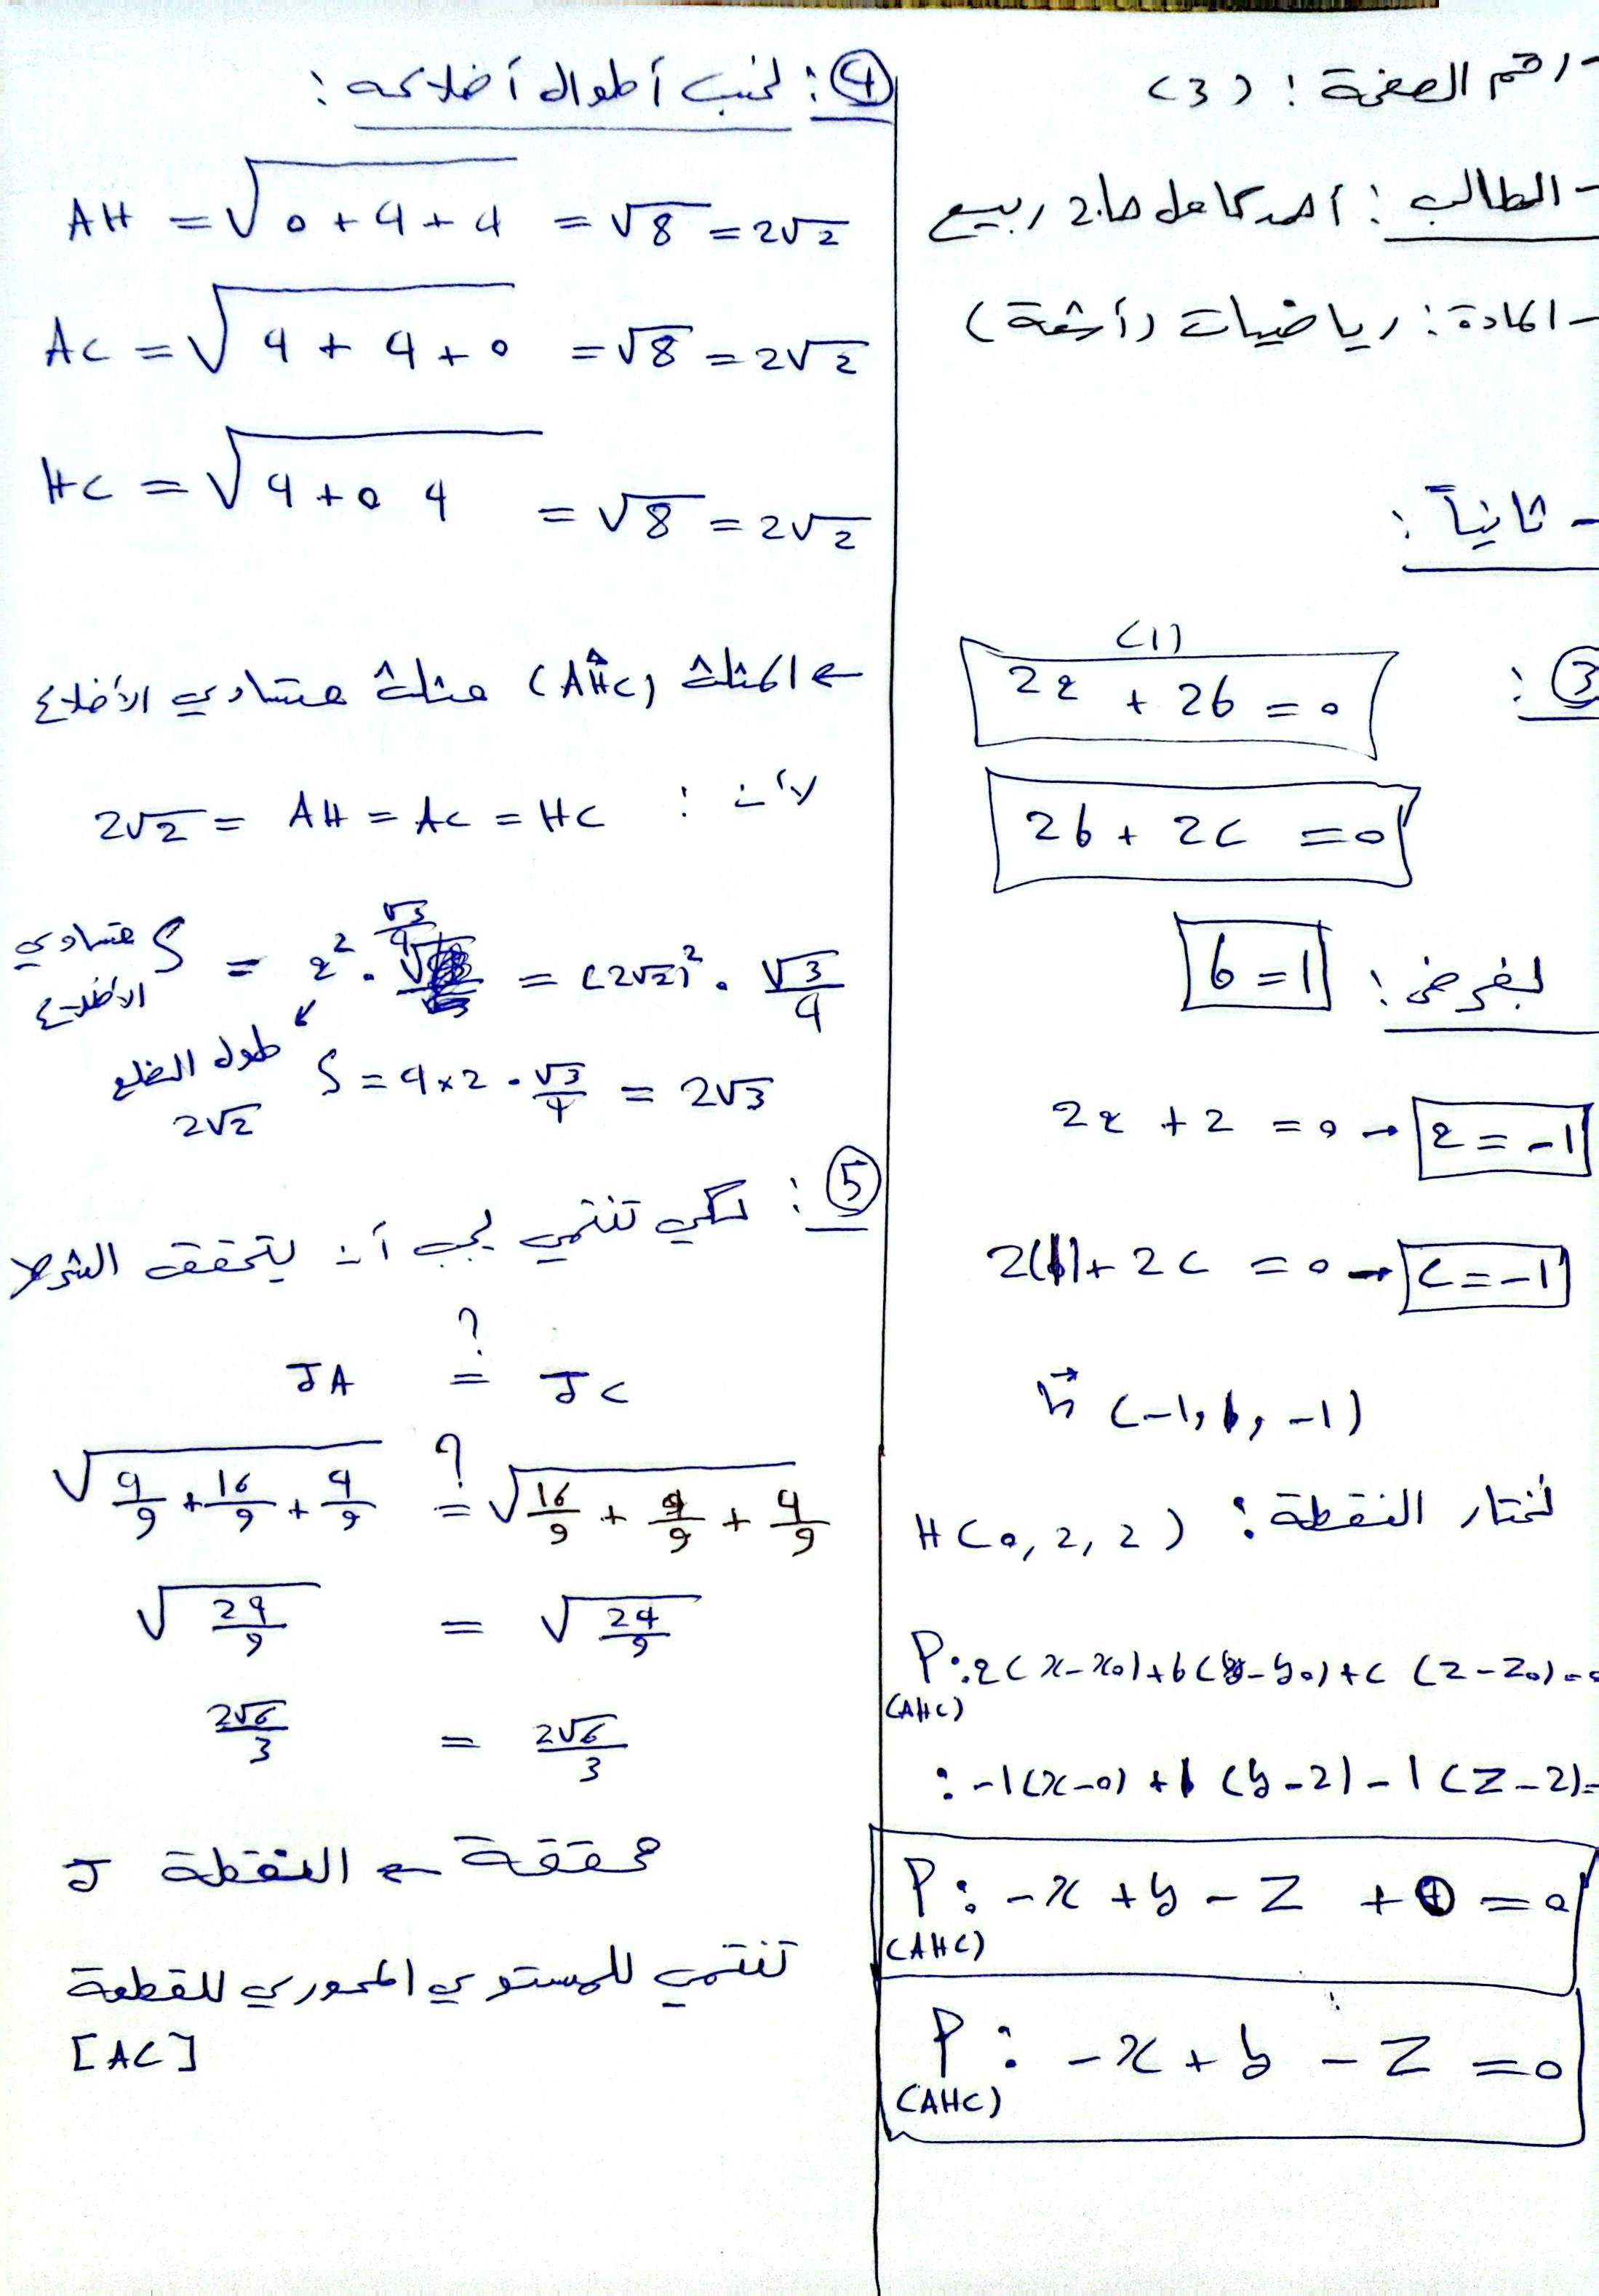 - رقم الصفحة : (3)
- الطالب : أحمد كامل حاج ربيع
- المادة : رياضيات (أشعة)
- ثانياً :
③ :
(1)
2a + 2b = 0
2b + 2c = 0
بفرض : b = 1
2a + 2 = 0 → a = -1
2(1) + 2c = 0 → c = -1
n⃗ (-1, 1, -1)
نختار النقطة : H(0, 2, 2)
P : a(x - x0) + b(y - y0) + c(z - z0) = 0
(AHC)
: -1(x-0) + 1(y-2) - 1(z-2) =
P : -x + y - z + 0 = 0
(AHC)
P : -x + y - z = 0
(AHC)
④ : نحسب أطوال أضلاعه :
AH = √(0 + 4 + 4) = √8 = 2√2
AC = √(4 + 4 + 0) = √8 = 2√2
HC = √(4 + 0 4) = √8 = 2√2
← المثلث (AHC) مثلث متساوي الأضلاع
لأن : 2√2 = AH = AC = HC
S متساوي الأضلاع = a² . √3/4 = (2√2)² . √3/4
طول الضلع 2√2
S = 4×2 . √3/4 = 2√3
⑤ : لكي تنتمي يجب أن يتحقق الشرط
JA ?= JC
√(4/9 + 16/9 + 4/9) ?= √(16/9 + 4/9 + 4/9)
√(24/9) = √(24/9)
2√6/3 = 2√6/3
محققة ← النقطة J
تنتمي للمستوي المحوري للقطعة
[AC]